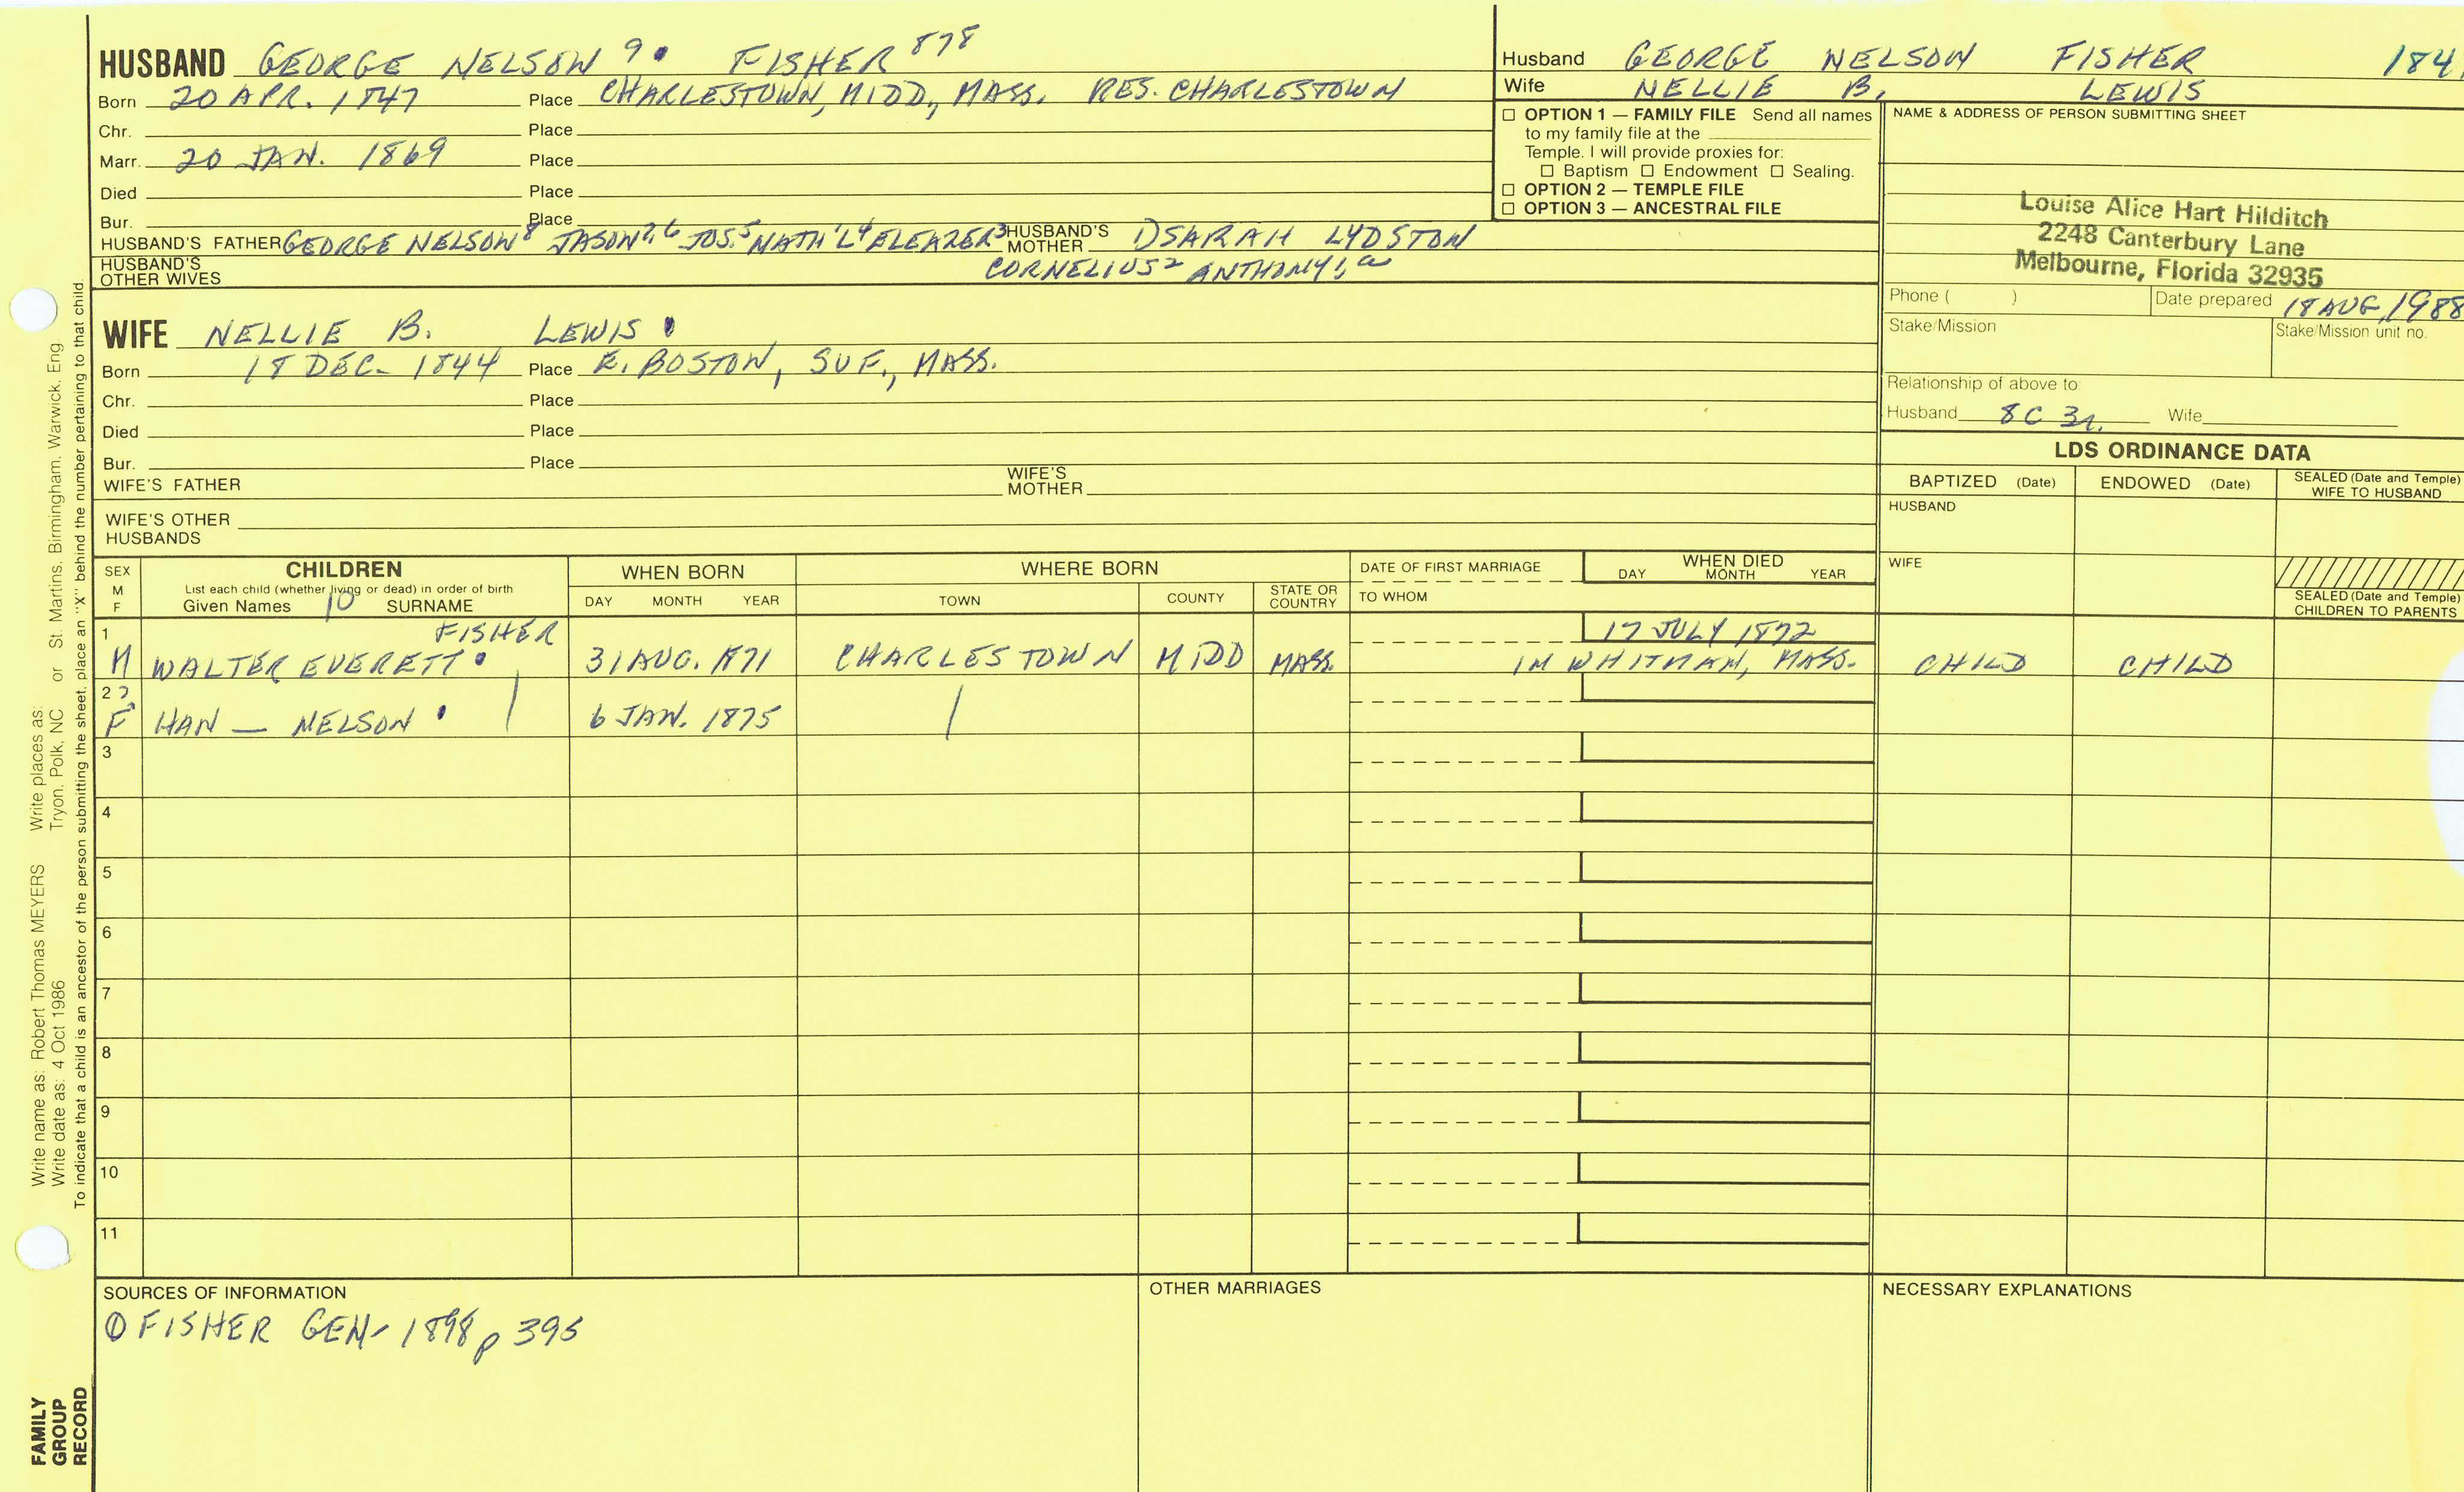 HUSBAND GEORGE NELSON 9 FISHER 878
Born 20 APR. 1847 Place CHARLESTOWN, MIDD., MASS. RES. CHARLESTOWN
Chr. Place
Marr. 20 JAN. 1869 Place
Died Place
Bur. Place
HUSBAND'S FATHER GEORGE NELSON 8 JASON 7, 6 JOS. 5 NATH'L 4 ELEAZER 3 HUSBAND'S MOTHER SARAH LYDSTON
HUSBAND'S OTHER WIVES CORNELIUS 2 ANTHONY 1, a
Husband GEORGE NELSON FISHER 184
Wife NELLIE B. LEWIS
☐ OPTION 1 — FAMILY FILE Send all names
to my family file at the
Temple. I will provide proxies for:
☐ Baptism ☐ Endowment ☐ Sealing.
☐ OPTION 2 — TEMPLE FILE
☐ OPTION 3 — ANCESTRAL FILE
NAME & ADDRESS OF PERSON SUBMITTING SHEET
Louise Alice Hart Hilditch
2248 Canterbury Lane
Melbourne, Florida 32935
Phone ( ) Date prepared 18 AUG, 1988
Stake/Mission Stake/Mission unit no.
Relationship of above to:
Husband 8C 3r. Wife
WIFE NELLIE B. LEWIS
Born 18 DEC. 1844 Place E. BOSTON, SUF., MASS.
Chr. Place
Died Place
Bur. Place
WIFE'S FATHER WIFE'S MOTHER
WIFE'S OTHER HUSBANDS
LDS ORDINANCE DATA
BAPTIZED (Date) ENDOWED (Date) SEALED (Date and Temple) WIFE TO HUSBAND
HUSBAND
WIFE
SEALED (Date and Temple) CHILDREN TO PARENTS
SEX M F
CHILDREN
List each child (whether living or dead) in order of birth
Given Names 10 SURNAME
WHEN BORN
DAY MONTH YEAR
WHERE BORN
TOWN COUNTY STATE OR COUNTRY
DATE OF FIRST MARRIAGE
TO WHOM
WHEN DIED
DAY MONTH YEAR
1 FISHER 17 JULY 1872
M WALTER EVERETT 31 AUG. 1871 CHARLESTOWN MIDD MASS. IN WHITMAN, MASS. CHILD CHILD
2 ?
F HAN — NELSON 6 JAN. 1875
3
4
5
6
7
8
9
10
11
SOURCES OF INFORMATION
① FISHER GEN- 1898 p 395
OTHER MARRIAGES
NECESSARY EXPLANATIONS
Write name as: Robert Thomas MEYERS Write places as:
Write date as: 4 Oct 1986 Tryon, Polk, NC or St. Martins, Birmingham, Warwick, Eng
To indicate that a child is an ancestor of the person submitting the sheet, place an "X" behind the number pertaining to that child.
FAMILY
GROUP
RECORD